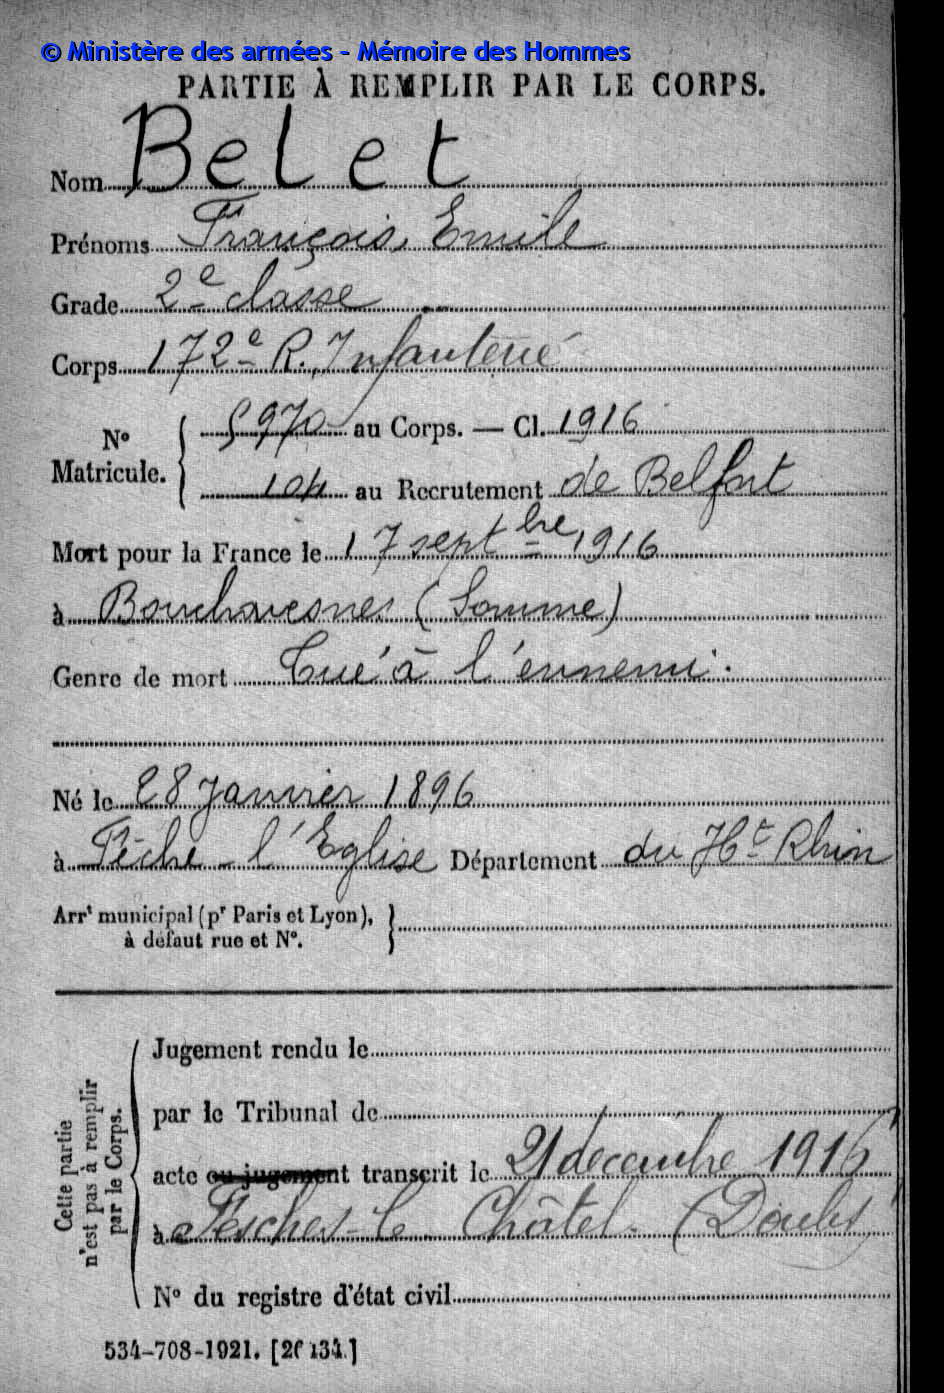 © Ministère des armées - Mémoire des Hommes
PARTIE À REMPLIR PAR LE CORPS.
Nom Belet
Prénoms François, Emile
Grade 2e classe
Corps 172e R. Infanterie
N° Matricule. 5970 au Corps. — Cl. 1916
104 au Recrutement de Belfort
Mort pour la France le 17 septbre 1916
à Bouchavesnes (Somme)
Genre de mort Tué à l'ennemi.
Né le 28 Janvier 1896
à Fêche-l'Eglise Département du Ht Rhin
Arrt municipal (pr Paris et Lyon),
à défaut rue et N°.
Cette partie
n'est pas à remplir
par le Corps.
Jugement rendu le
par le Tribunal de
acte ou jugement transcrit le 21 decembre 1916
à Fesches-le-Châtel. (Doubs)
N° du registre d'état civil
534-708-1921. [26434.]